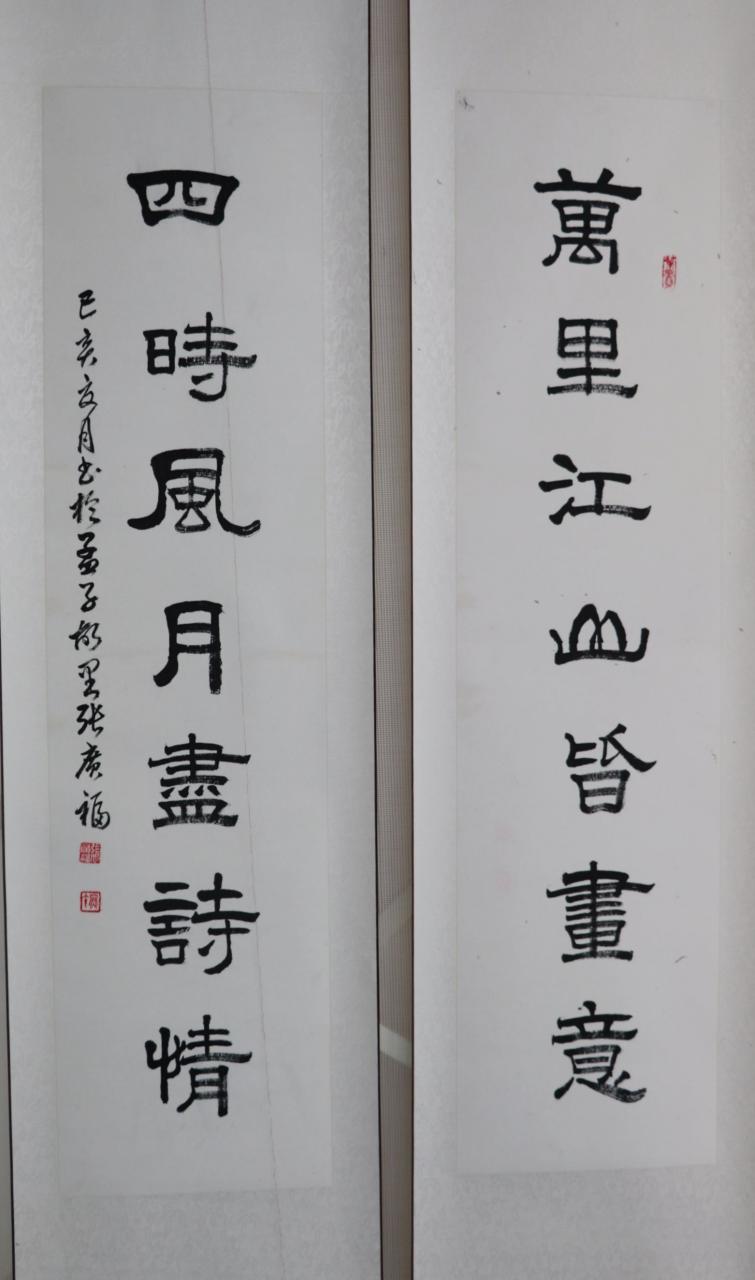 萬里江山皆畫意
四時風月盡詩情
己亥夏月书於孟子故里張廣福